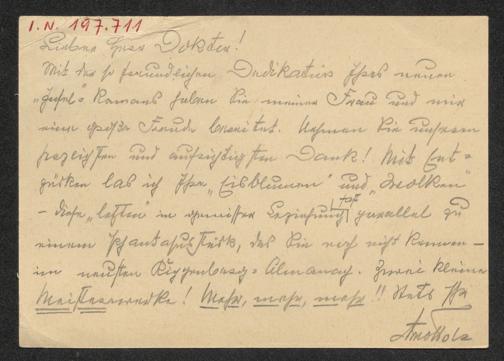 I. N. 197.711
Lieber Herr Doktor!
Mit der so freundlichen Dedikation Ihres neuen
"Insel"-Romans haben Sie meiner Frau und mir
eine große Freude bereitet. Nehmen Sie unseren
herzlichsten und aufrichtigsten Dank! Mit Ent-
zücken las ich Ihre "Eisblumen" und "Wolken"
– diese "letzten" in gewisser Beziehung fast parallel zu
einem Phantasusstück, das Sie noch nicht kennen –
im neusten Almanach. Zwei kleine
Meisterwerke! Mehr, mehr, mehr!! Stets Ihr
Arno Holz